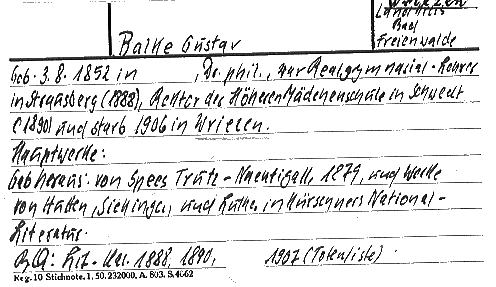 Wriezen
Landkreis
Bad
Freienwalde
Balke Gustav
Geb. 3. 8. 1852 in , Dr. phil., war Realgymnasial-Lehrer
in Strausberg (1888), Rektor der Höheren Mädchenschule in Schwedt
(1890) und starb 1906 in Wriezen.
Hauptwerke:
Gab heraus: von Spees Trutz-Nachtigall, 1879, und Werke
von Hutten, Sickingen, und Luther in Kürschners National-
Literatur.
BQ: Lit-Kal. 1888, 1890, 1907 (Totenliste).
Reg. 10 Stichnote. 1. 50. 232000. A. 803. S. 4662